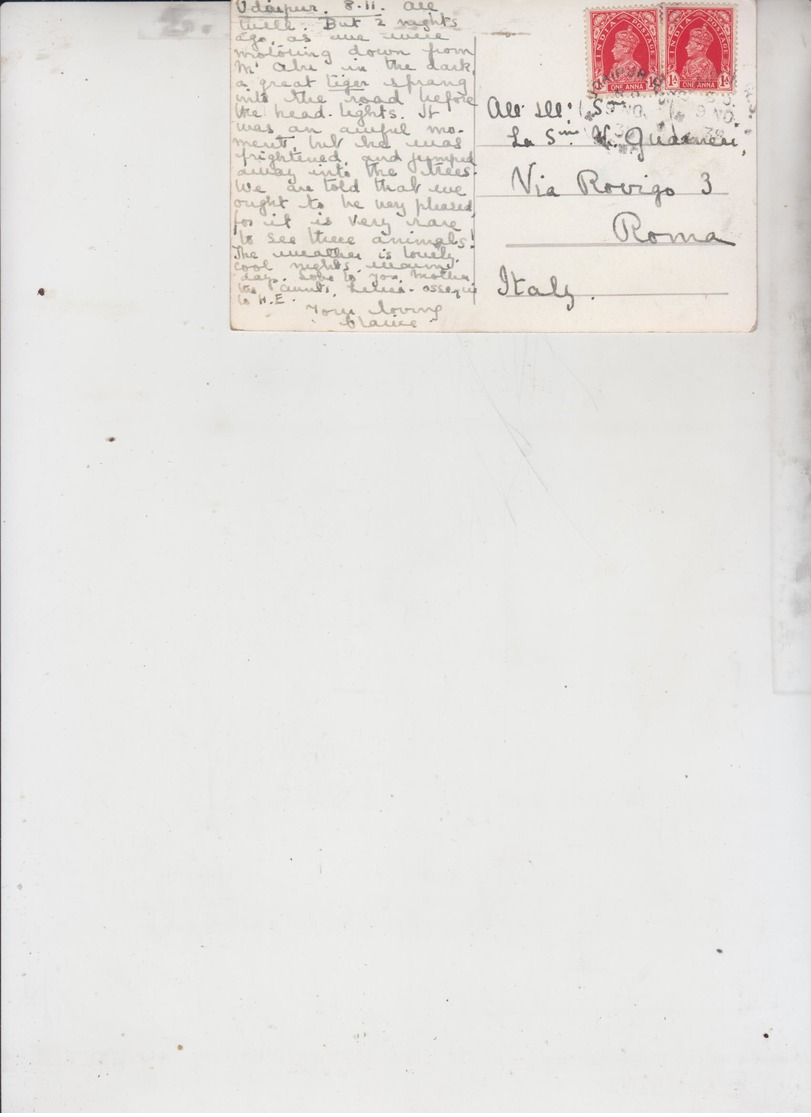 Udaipur. 8.11. All
well. But 2 nights
ago, as we were
motoring down from
Mt Abu in the dark,
a great tiger sprang
into the road before
the head-lights. It
was an awful mo-
ment, but he was
frightened, and jumped
away into the trees.
We are told that we
ought to be very pleased,
for it is very rare
to see these animals!
The weather is lovely.
cool nights, warm
days. Love to you, Mother,
the Aunts,
to H.E.
Your loving
INDIA POSTAGE
1A ONE ANNA
INDIA POSTAGE
1A ONE ANNA
UDAIPUR
9 NO.
38
9 NO.
38
All' Ill:
La
Via Rovigo 3
Roma
Italy.